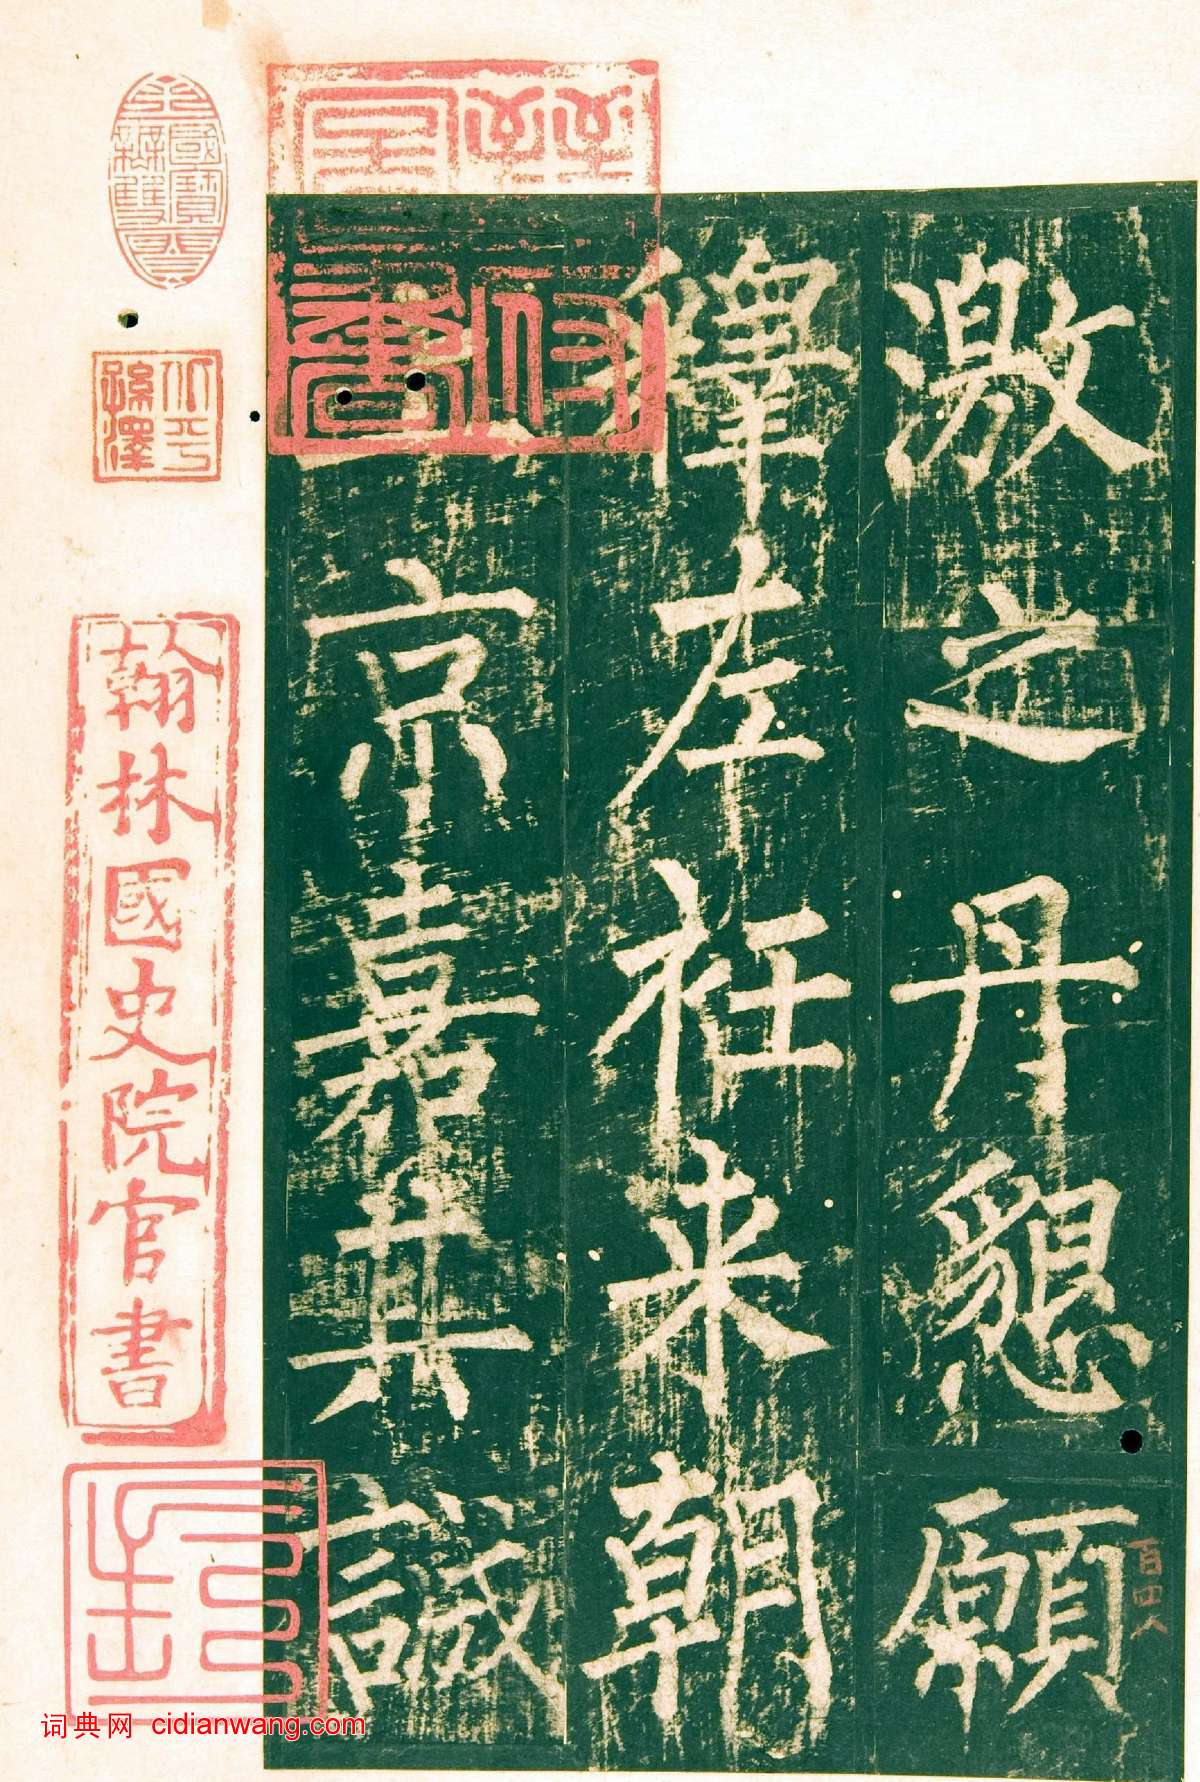 激之丹懇願
釋左衽来朝
上京嘉其誠
翰林國史院官書
百四八
词典网 cidianwang.com